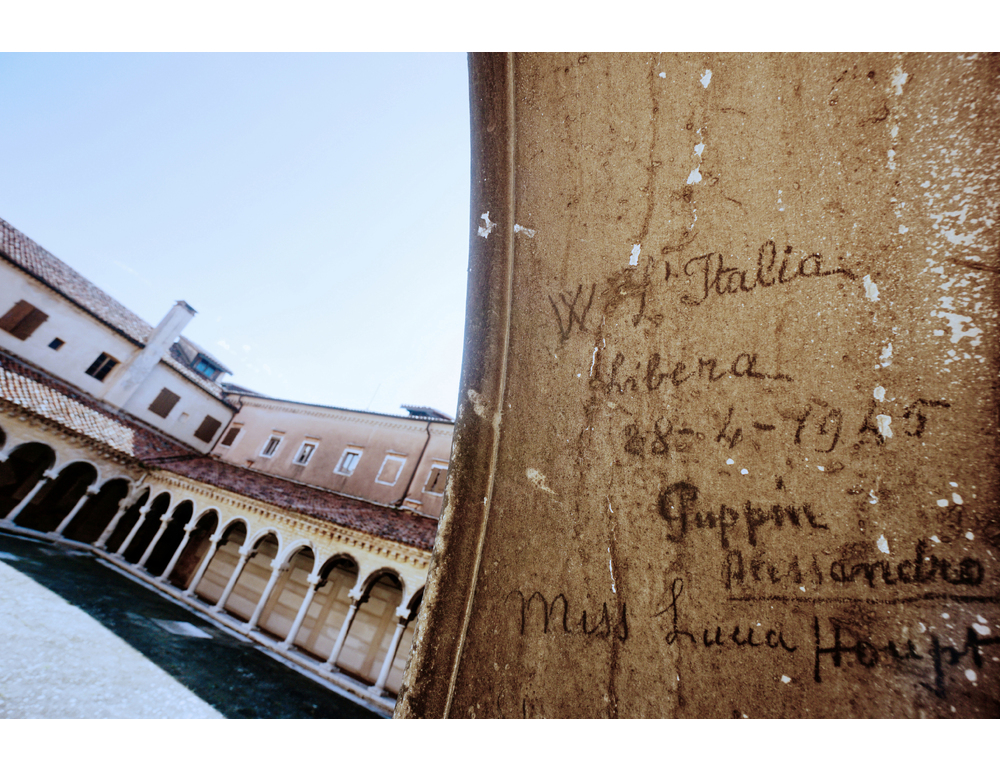 W L'Italia
Libera
28-4-1945
Guppin
Alessandro
Miss Houpt